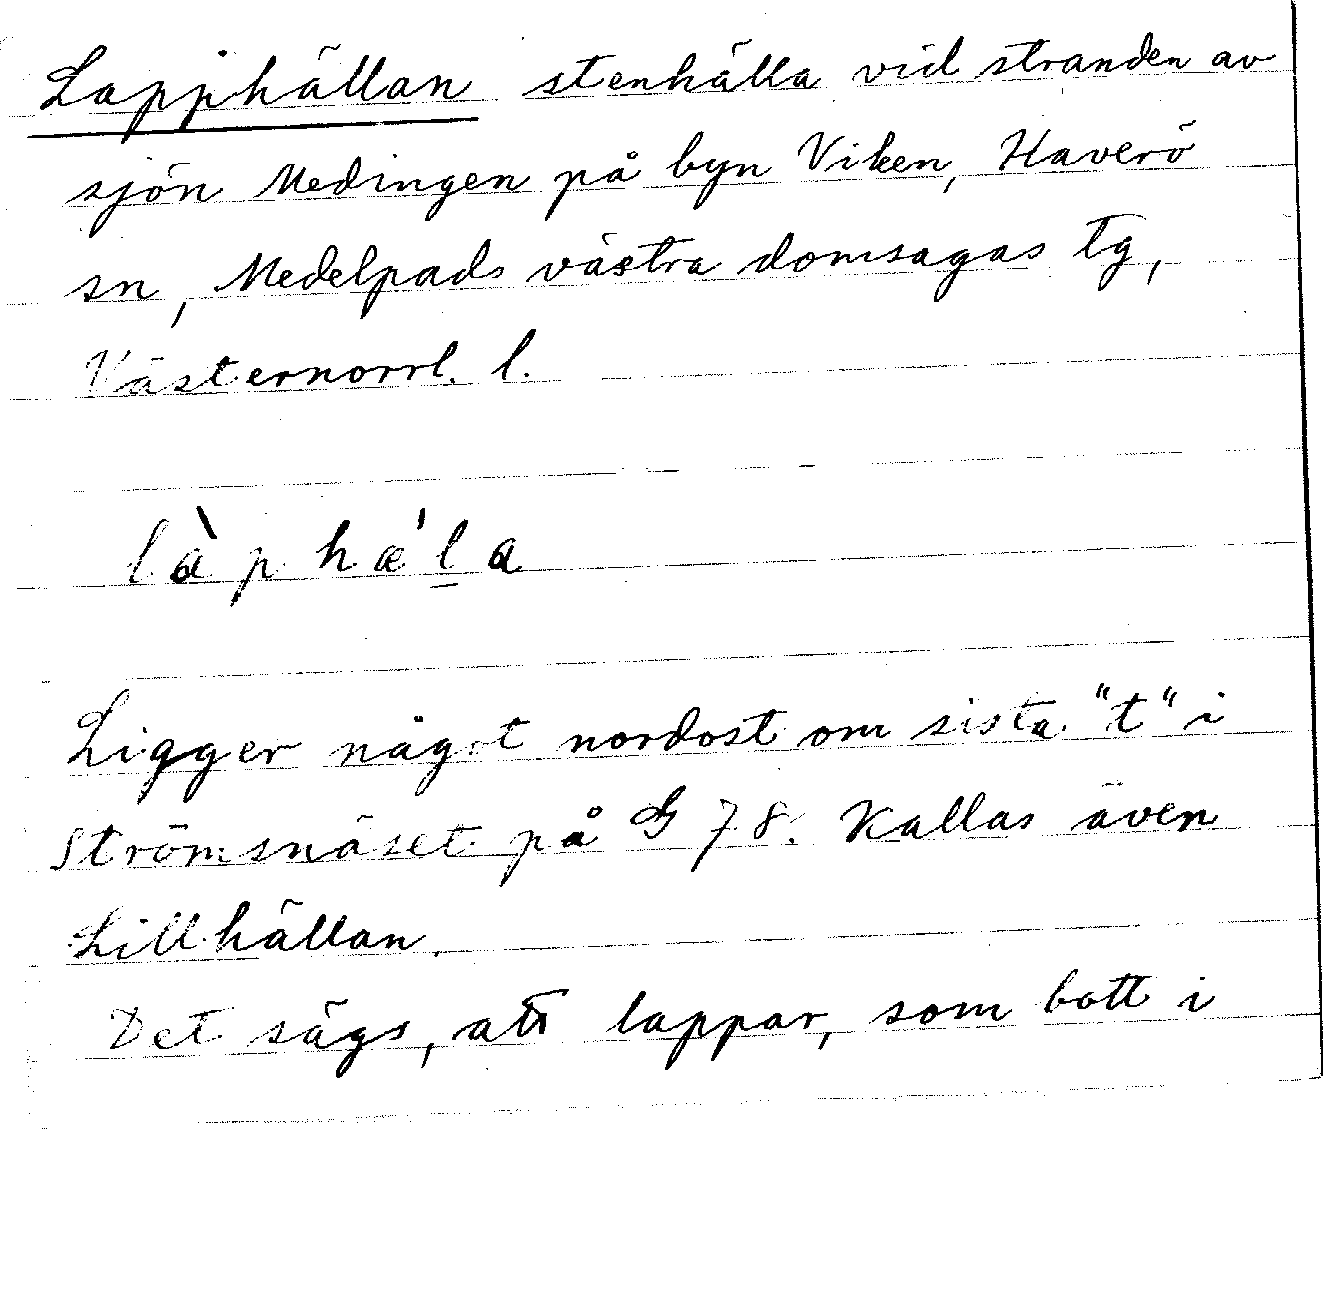 Lapphällan stenhälla vid stranden av
sjön Medingen på byn Viken, Haverö
sn, Medelpads västra domsagas tg,
Västernorrl. l.
là p h æ' l̲ a
Ligger något nordost om sista "t" i
Strömsnäset på G 78. Kallas även
Lillhällan.
Det sägs, att lappar, som bott i